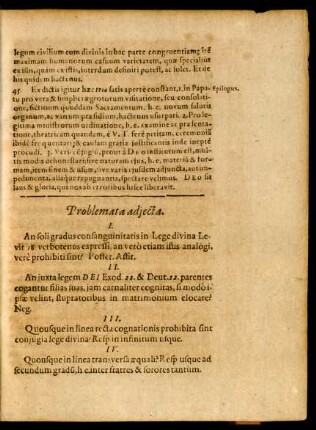 legum civilium cum divinis in hac parte congruentiam; hẽ
maximam humanorum casuum varietatem, quæ specialius
ex iisn, quam ex istis, interdum definiri potest, ac solet. Et de
his quidem hactenus.
45 Ex dictis igitur hæc tria satis aperte constant, 1. in Papa- Epilogus.
tu pro vera & simplici ægrotorum visitatione, seu consolati-
one, fictitium quoddam Sacramentum, h. e. novum salutis
organum, ac vanum præsidium, hactenus usurpari. 2. Pro le-
gitima ministrorum ordinatione, h. e. examine ac præsenta-
tione, theatricam quandam, é V. T. ferè petitam, ceremoniã
ibidẽ frequentari; & eandem gratiæ justificantis inde ineptè
procudi. 3. Veri conjugii, prout à DEO institutum est, mul-
tis modis dehonestari sive naturam ejus, h. e. materiã & for-
mam, item finem & usum, sive varia ejusdem adjuncta, aut im-
pedimenta, aliaque repugnantia, spectare velimus. DEO sit
laus & gloria, qui nos ab erroribus hisce liberavit.
Problemata adjecta.
I.
An soli gradus consanguinitatis in Lege divina Le-
vit 18 verbotenus expressi, an verò etiam istis analogi,
verè prohibiti sint? Poster. Astit.
II.
An juxta legem DEI Exod. 22. & Deut. 22. parentes
cogantur filias suas, jam carnaliter cognitas, si modò i-
psæ velint, stupratoribus in matrimonium elocare?
Neg.
III.
Quousque in linea recta cognationis prohibita sint
conjugia lege divina? Resp in infinitum usque.
IV.
Quousque in linea transversa æquali? Resp usque ad
secundum gradũ, h e. inter fratres & sorores tantum.